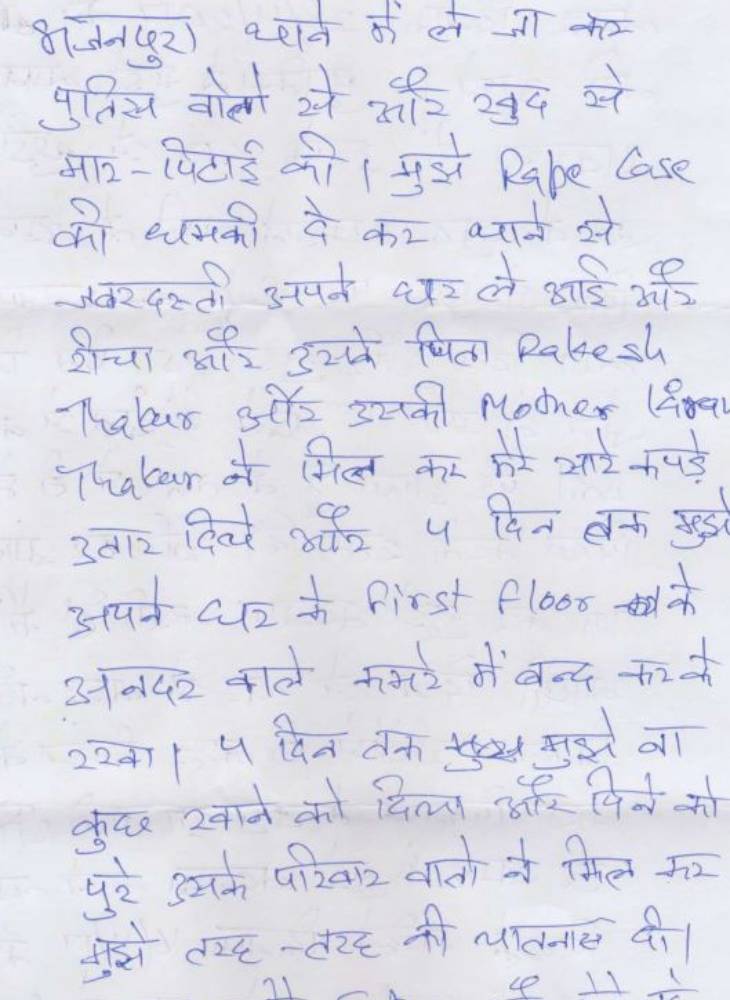 भजनपुरा थाने में ले जा कर
पुलिस वोलो से और खुद से
मार-पिटाई की। मुझे Rape Case
की धमकी दे कर थाने से
जबरदस्ती अपने घर ले आई और
रीचा और उसके पिता Rakesh
Thakur और उसकी Mother Kiran
Thakur ने मिल कर मेरे सारे कपड़े
उतार दिये और 5 दिन तक मुझे
अपने घर के first floor के
अनदर वाले कमरे में बन्द करके
रखा। 5 दिन तक मुझे ना
कुछ खाने को दिया और पिने को
पुरे उसके परिवार वालो ने मिल कर
मुझे तरह-तरह की यातनाएं दी।